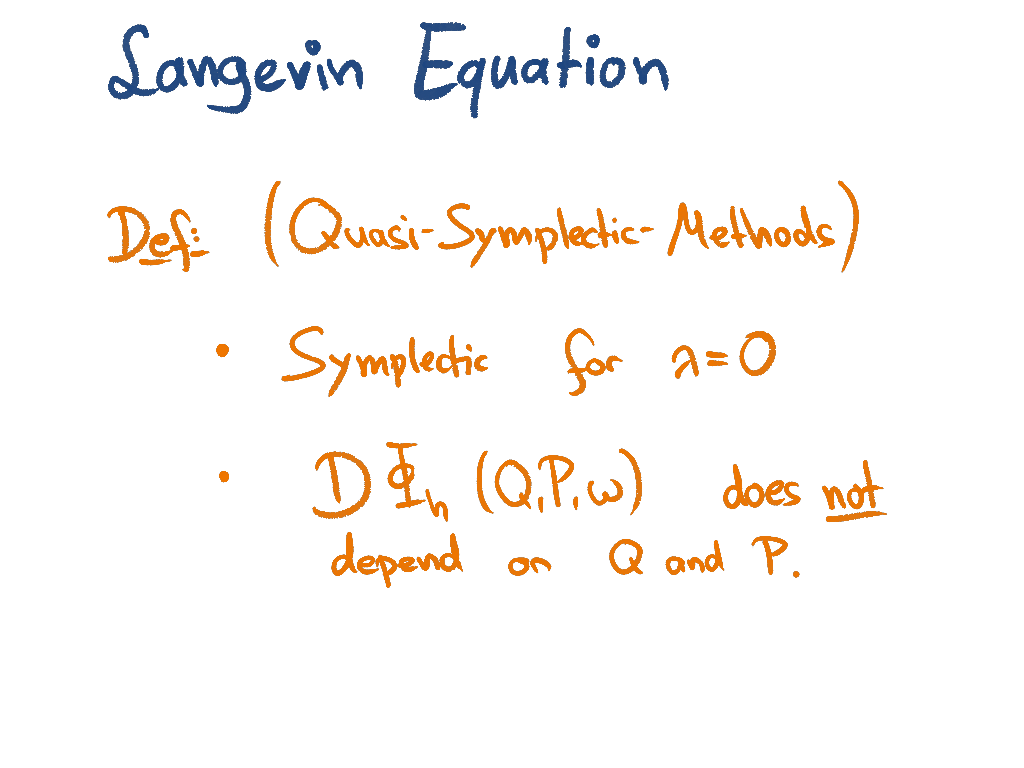 Langevin Equation
Def: (Quasi-Symplectic-Methods)
• Symplectic for λ=0
• DΦ_h (Q,P,ω) does not
depend on Q and P.